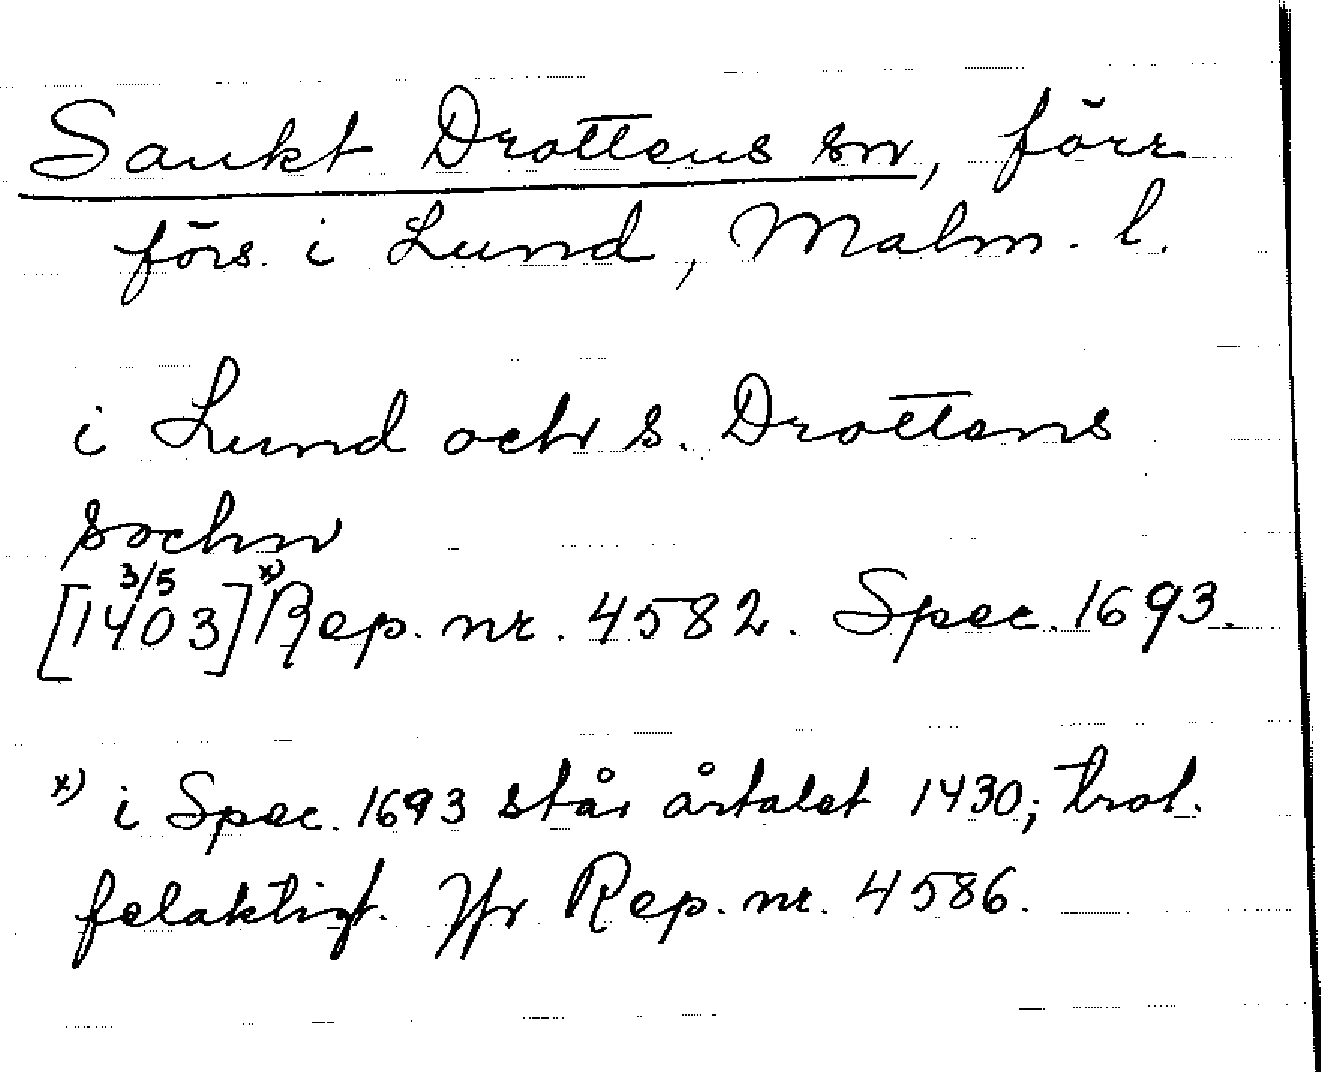 Sankt Drottens sn, förr
förs. i Lund, Malm. l.
i Lund och s. Drottens
sochn
3/5
[1403]x) Rep. nr. 4582. Spec. 1693.
x) i Spec. 1693 står årtalet 1430; trol.
felaktigt. Jfr Rep. nr. 4586.